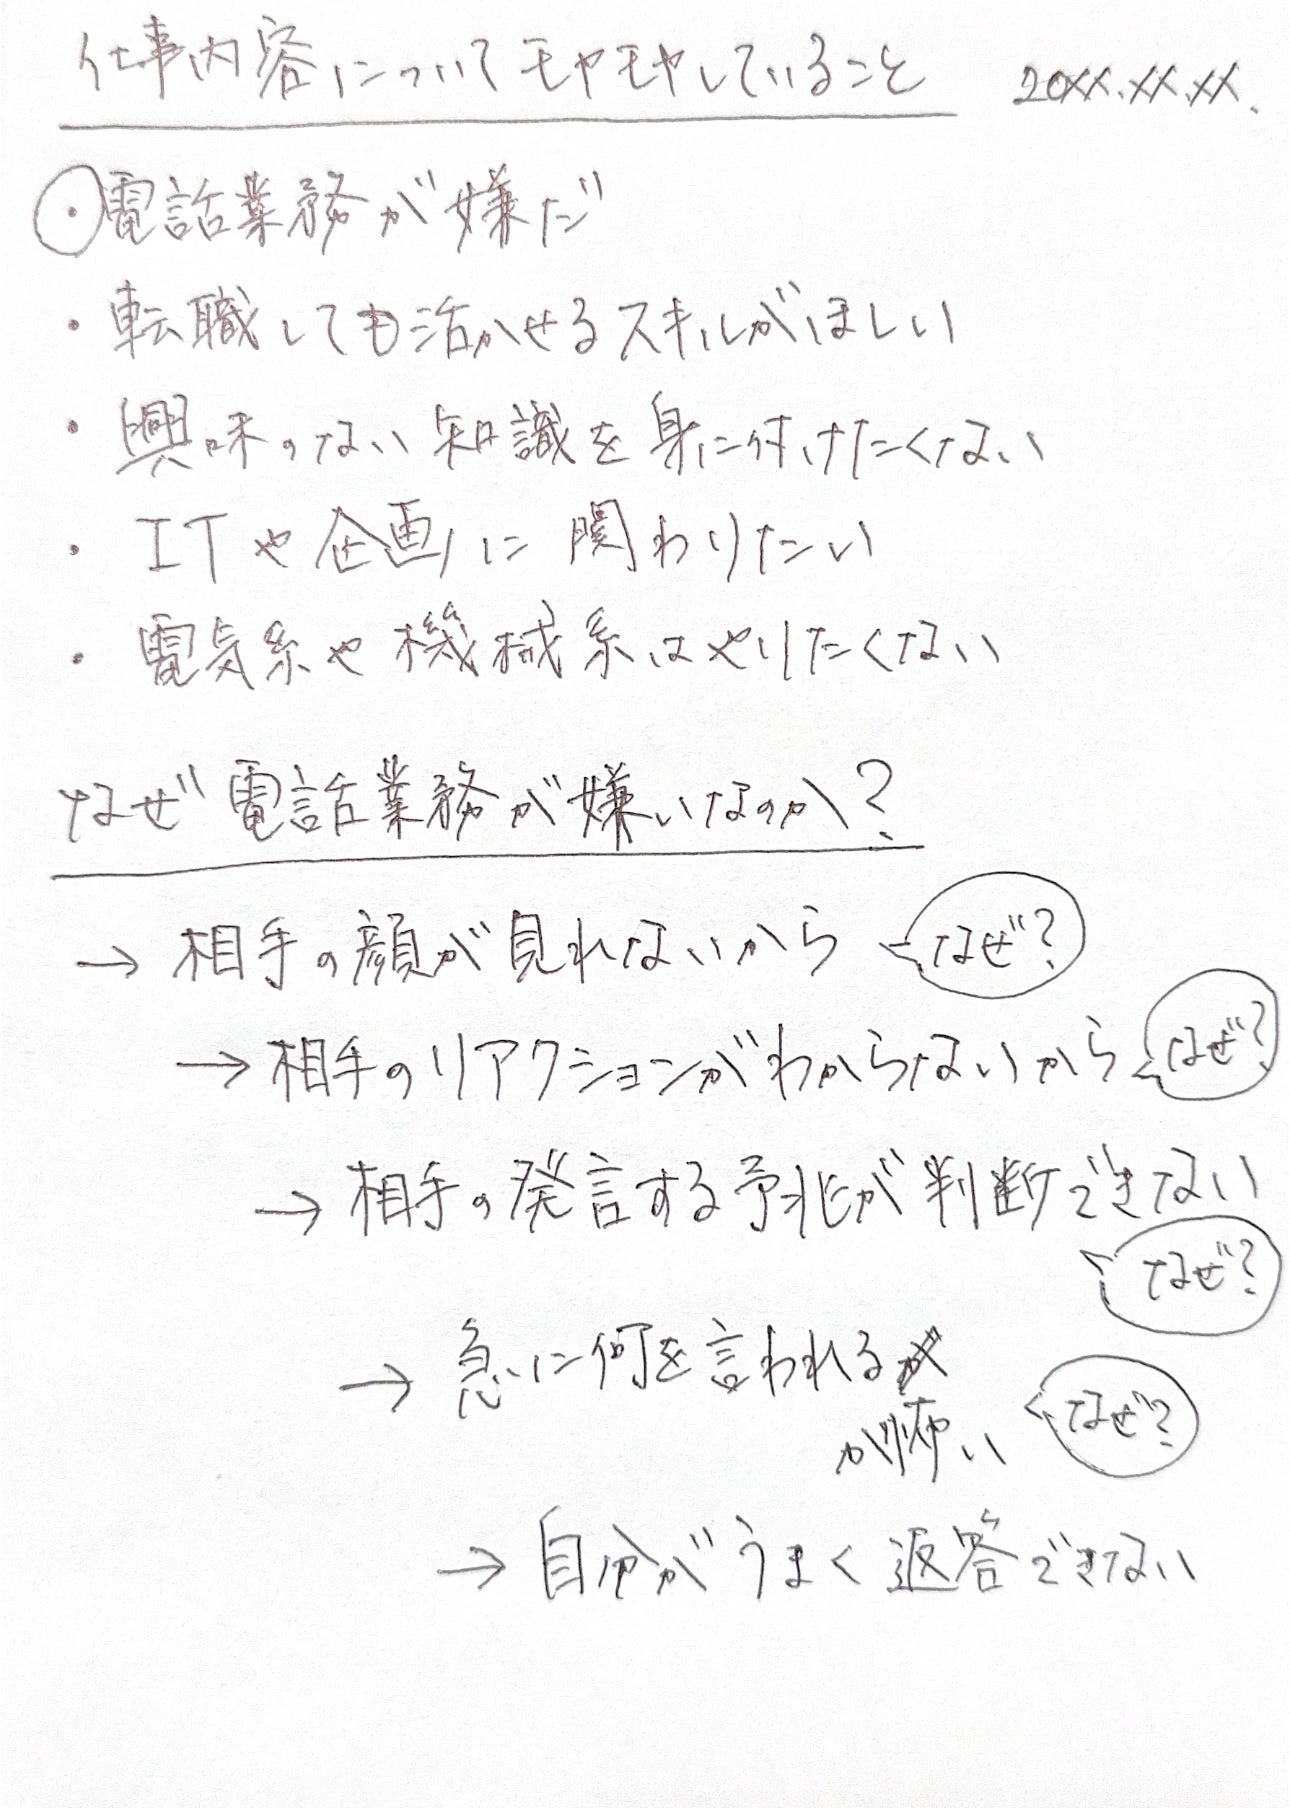 仕事内容についてモヤモヤしていること 20XX.XX.XX.
・電話業務が嫌だ
・転職しても活かせるスキルがほしい
・興味のない知識を身に付けたくない
・ITや企画に関わりたい
・電気系や機械系はやりたくない
なぜ電話業務が嫌いなのか?
→ 相手の顔が見れないから なぜ?
→ 相手のリアクションがわからないから なぜ?
→ 相手の発言する予兆が判断できない
なぜ?
→ 急に何を言われる
が怖い なぜ?
→ 自分がうまく返答できない